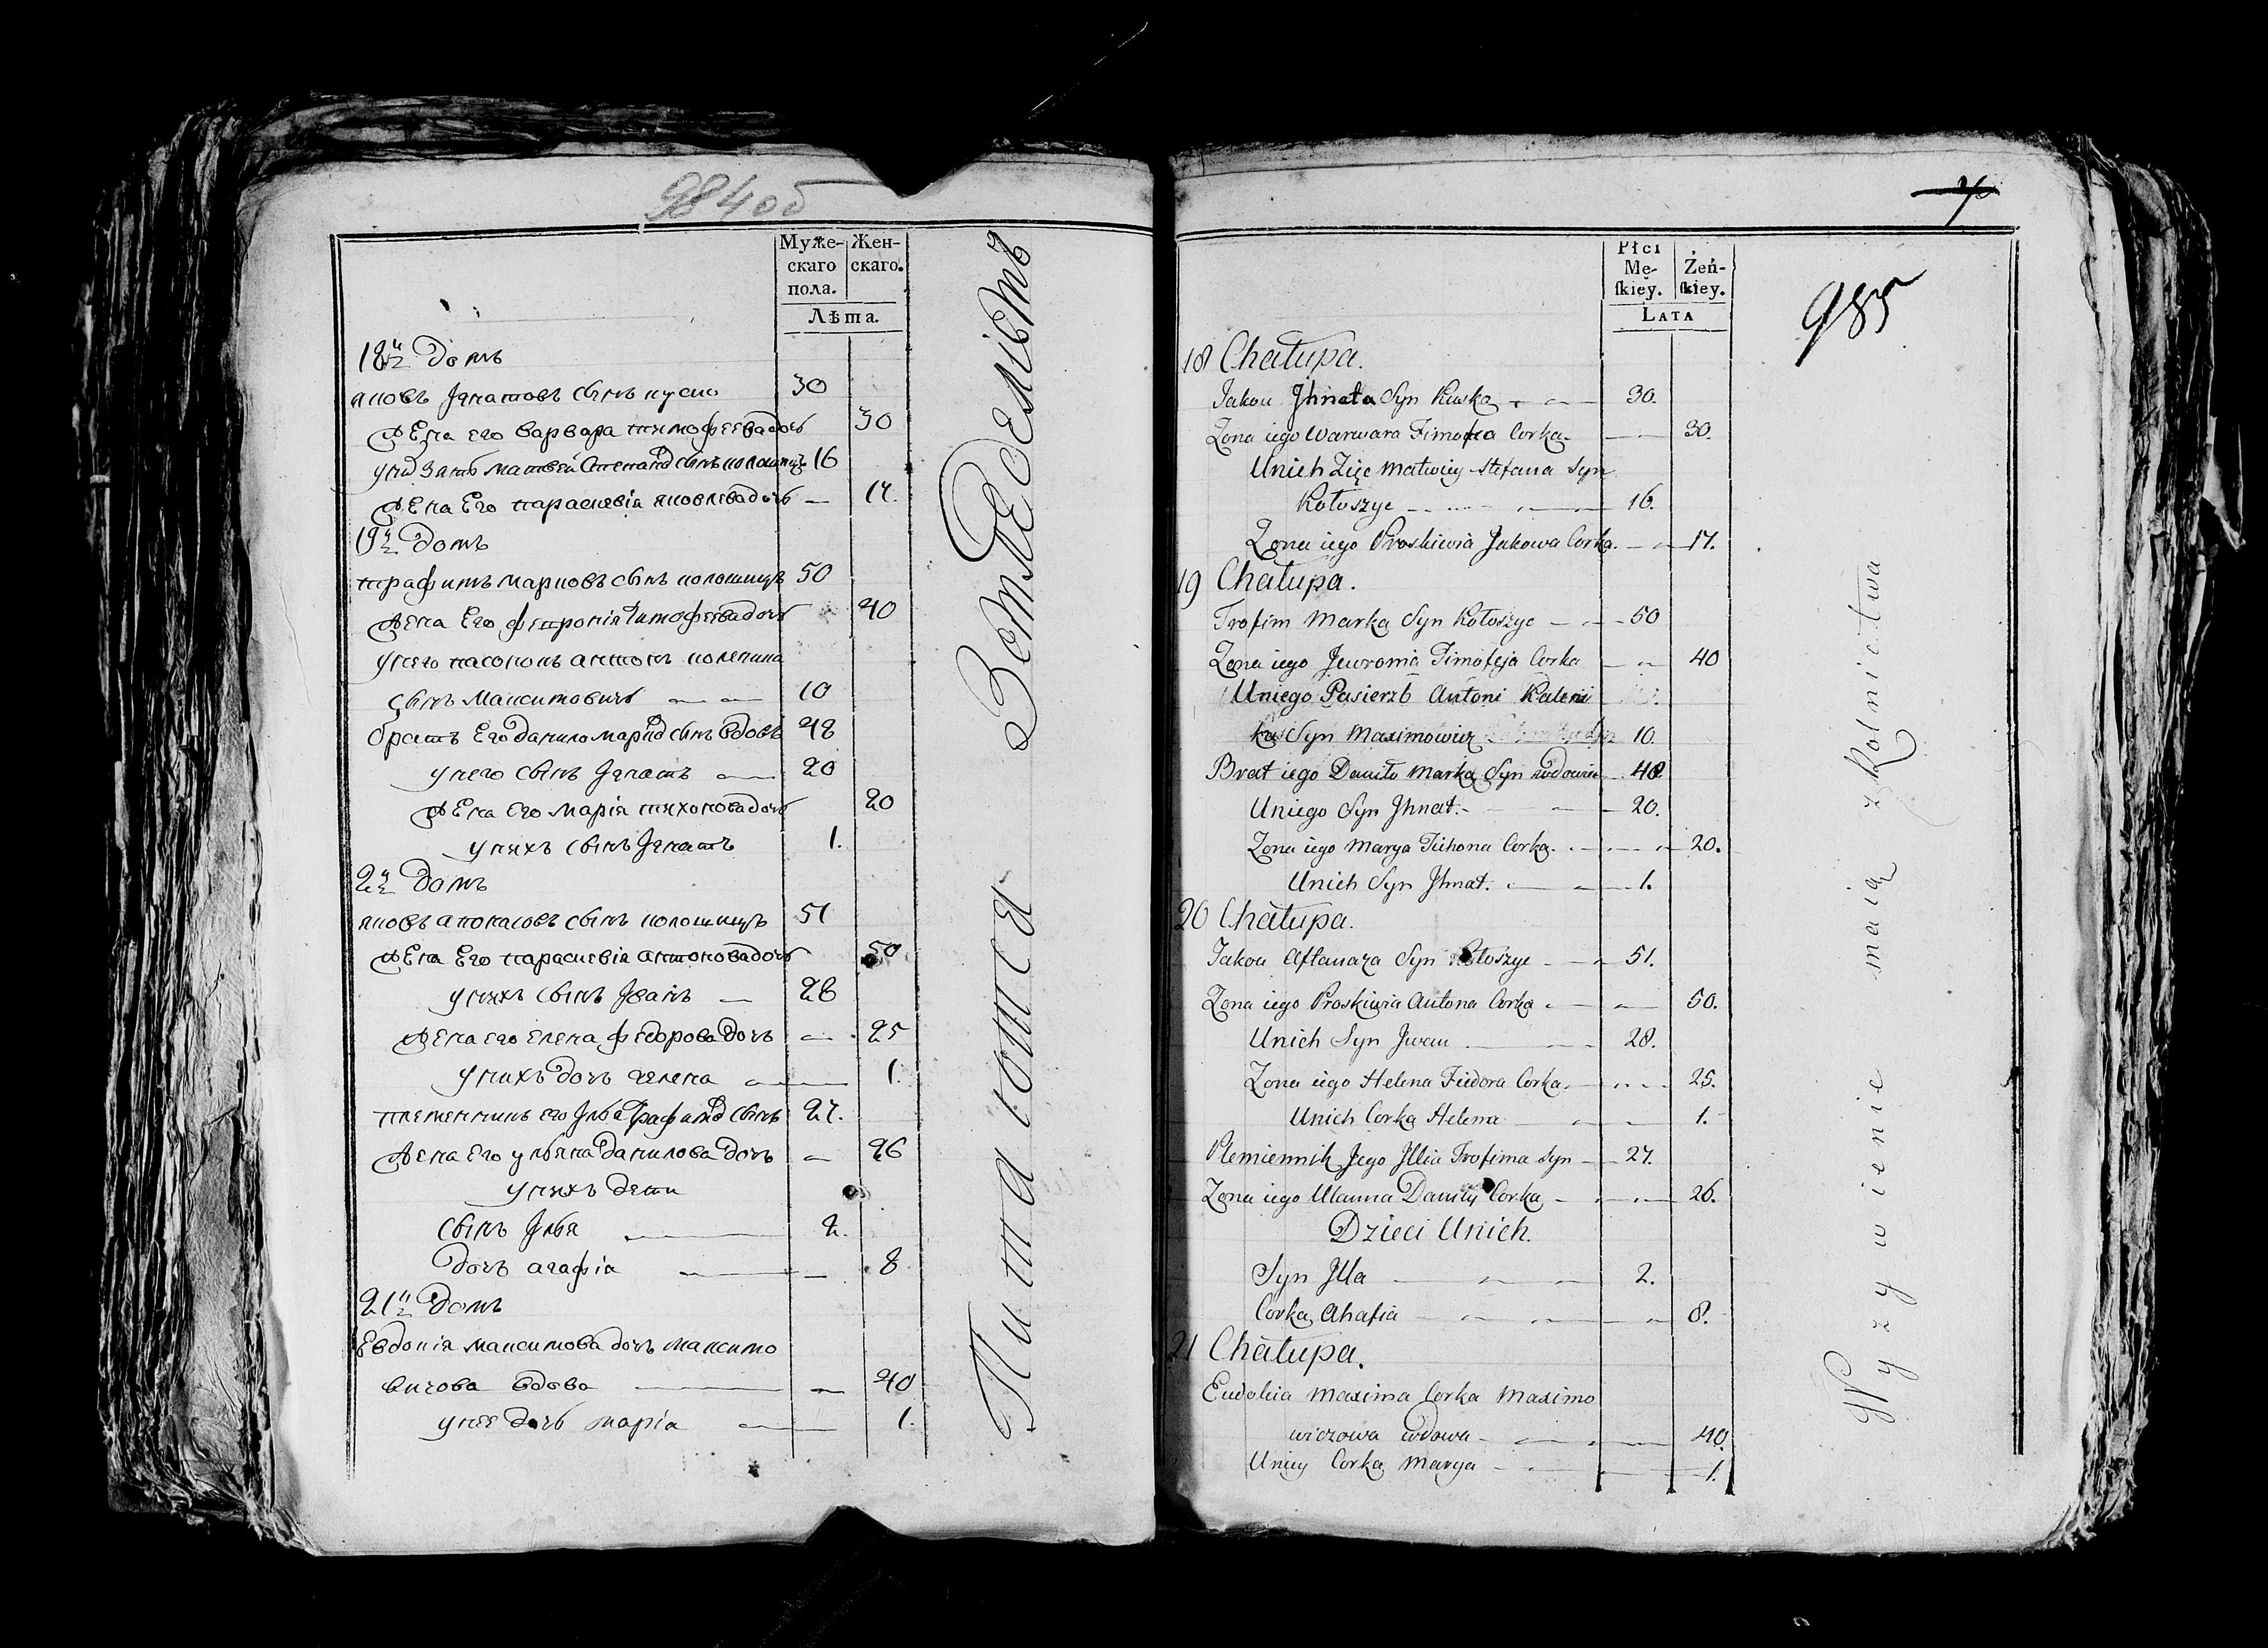 984об
Муже-
скаго
пола.
Жен-
скаго.
Лѣта.
18й Домъ
яковъ Игнатовъ сынъ куско 30
Жена его варвара тимофеева дочь 30
Жена Его параскевія яковлева дочь — 17.
19й Домъ
трафимъ марковъ сынъ колошицъ 50
Жена Его февронія тимофеева дочь 40
у него пасонокъ антонъ коленика
сынъ Максимовичъ 10
братъ Его данило марков сынъ вдовъ 48
у него сынъ Игнатъ 20
Жена его марія тихонова дочь 20
у нихъ сынъ Игнатъ 1.
2й Домъ
яковъ апонасовъ сынъ колошицъ 51
Жена Его параскевія антонова дочь 50
у нихъ сынъ Иванъ — 28
Жена его елена федорова дочь 25
у нихъ дочь гелена 1.
племенникъ его Илья трафимов сынъ 27.
Жена Его ульяна данилова дочь 26
у нихъ дети
сынъ Илья 2.
дочь агафіа 8
21й Домъ
Евдокія максимова дочь максимо
вичова вдова 40
у нее дочь марія 1.
Питаются Земледеліемъ
7
985
Płci
Mę-
ſkiey.
Żeń-
ſkiey.
Lata
18 Chałupa.
Jakou Jhnata Syn Kuska 30.
Zona iego Warwara Timofea Corka 30.
Unich Zięc Matwiey Stefana Syn
Kołoszyc 16.
Zona iego Proskiewia Jakowa Corka. 17.
19 Chałupa.
Trofim Marka Syn Kołoszyc 50
Zona iego Jewronia Timofeja Corka 40
Uniego Pasierzb Antoni Kaleni
ka Syn Maximowicz 10.
Brat iego Daniło Marka Syn wdowiec 48.
Uniego Syn Jhnat. 20.
Zona iego Marya Tichona Corka. 20.
Unich Syn Jhnat. 1.
20 Chałupa.
Jakou Aftanaza Syn Kołoszyc 51.
Zona iego Proskiewia Antona Corka 50.
Unich Syn Jwan 28.
Zona iego Helena Fiedora Corka. 25.
Unich Corka Helena 1.
Plemiennik Jego Jllia Trofima Syn 27.
Zona iego Ulanna Daniły Corka 26.
Dzieci Unich.
Syn Jlla 2.
Corka Ahafia 8.
21 Chałupa.
Eudokia Maxima Corka Maximo
wiczowa wdowa 40
Uniey Corka Marya 1.
Wyzywienie maią z Rolnictwa